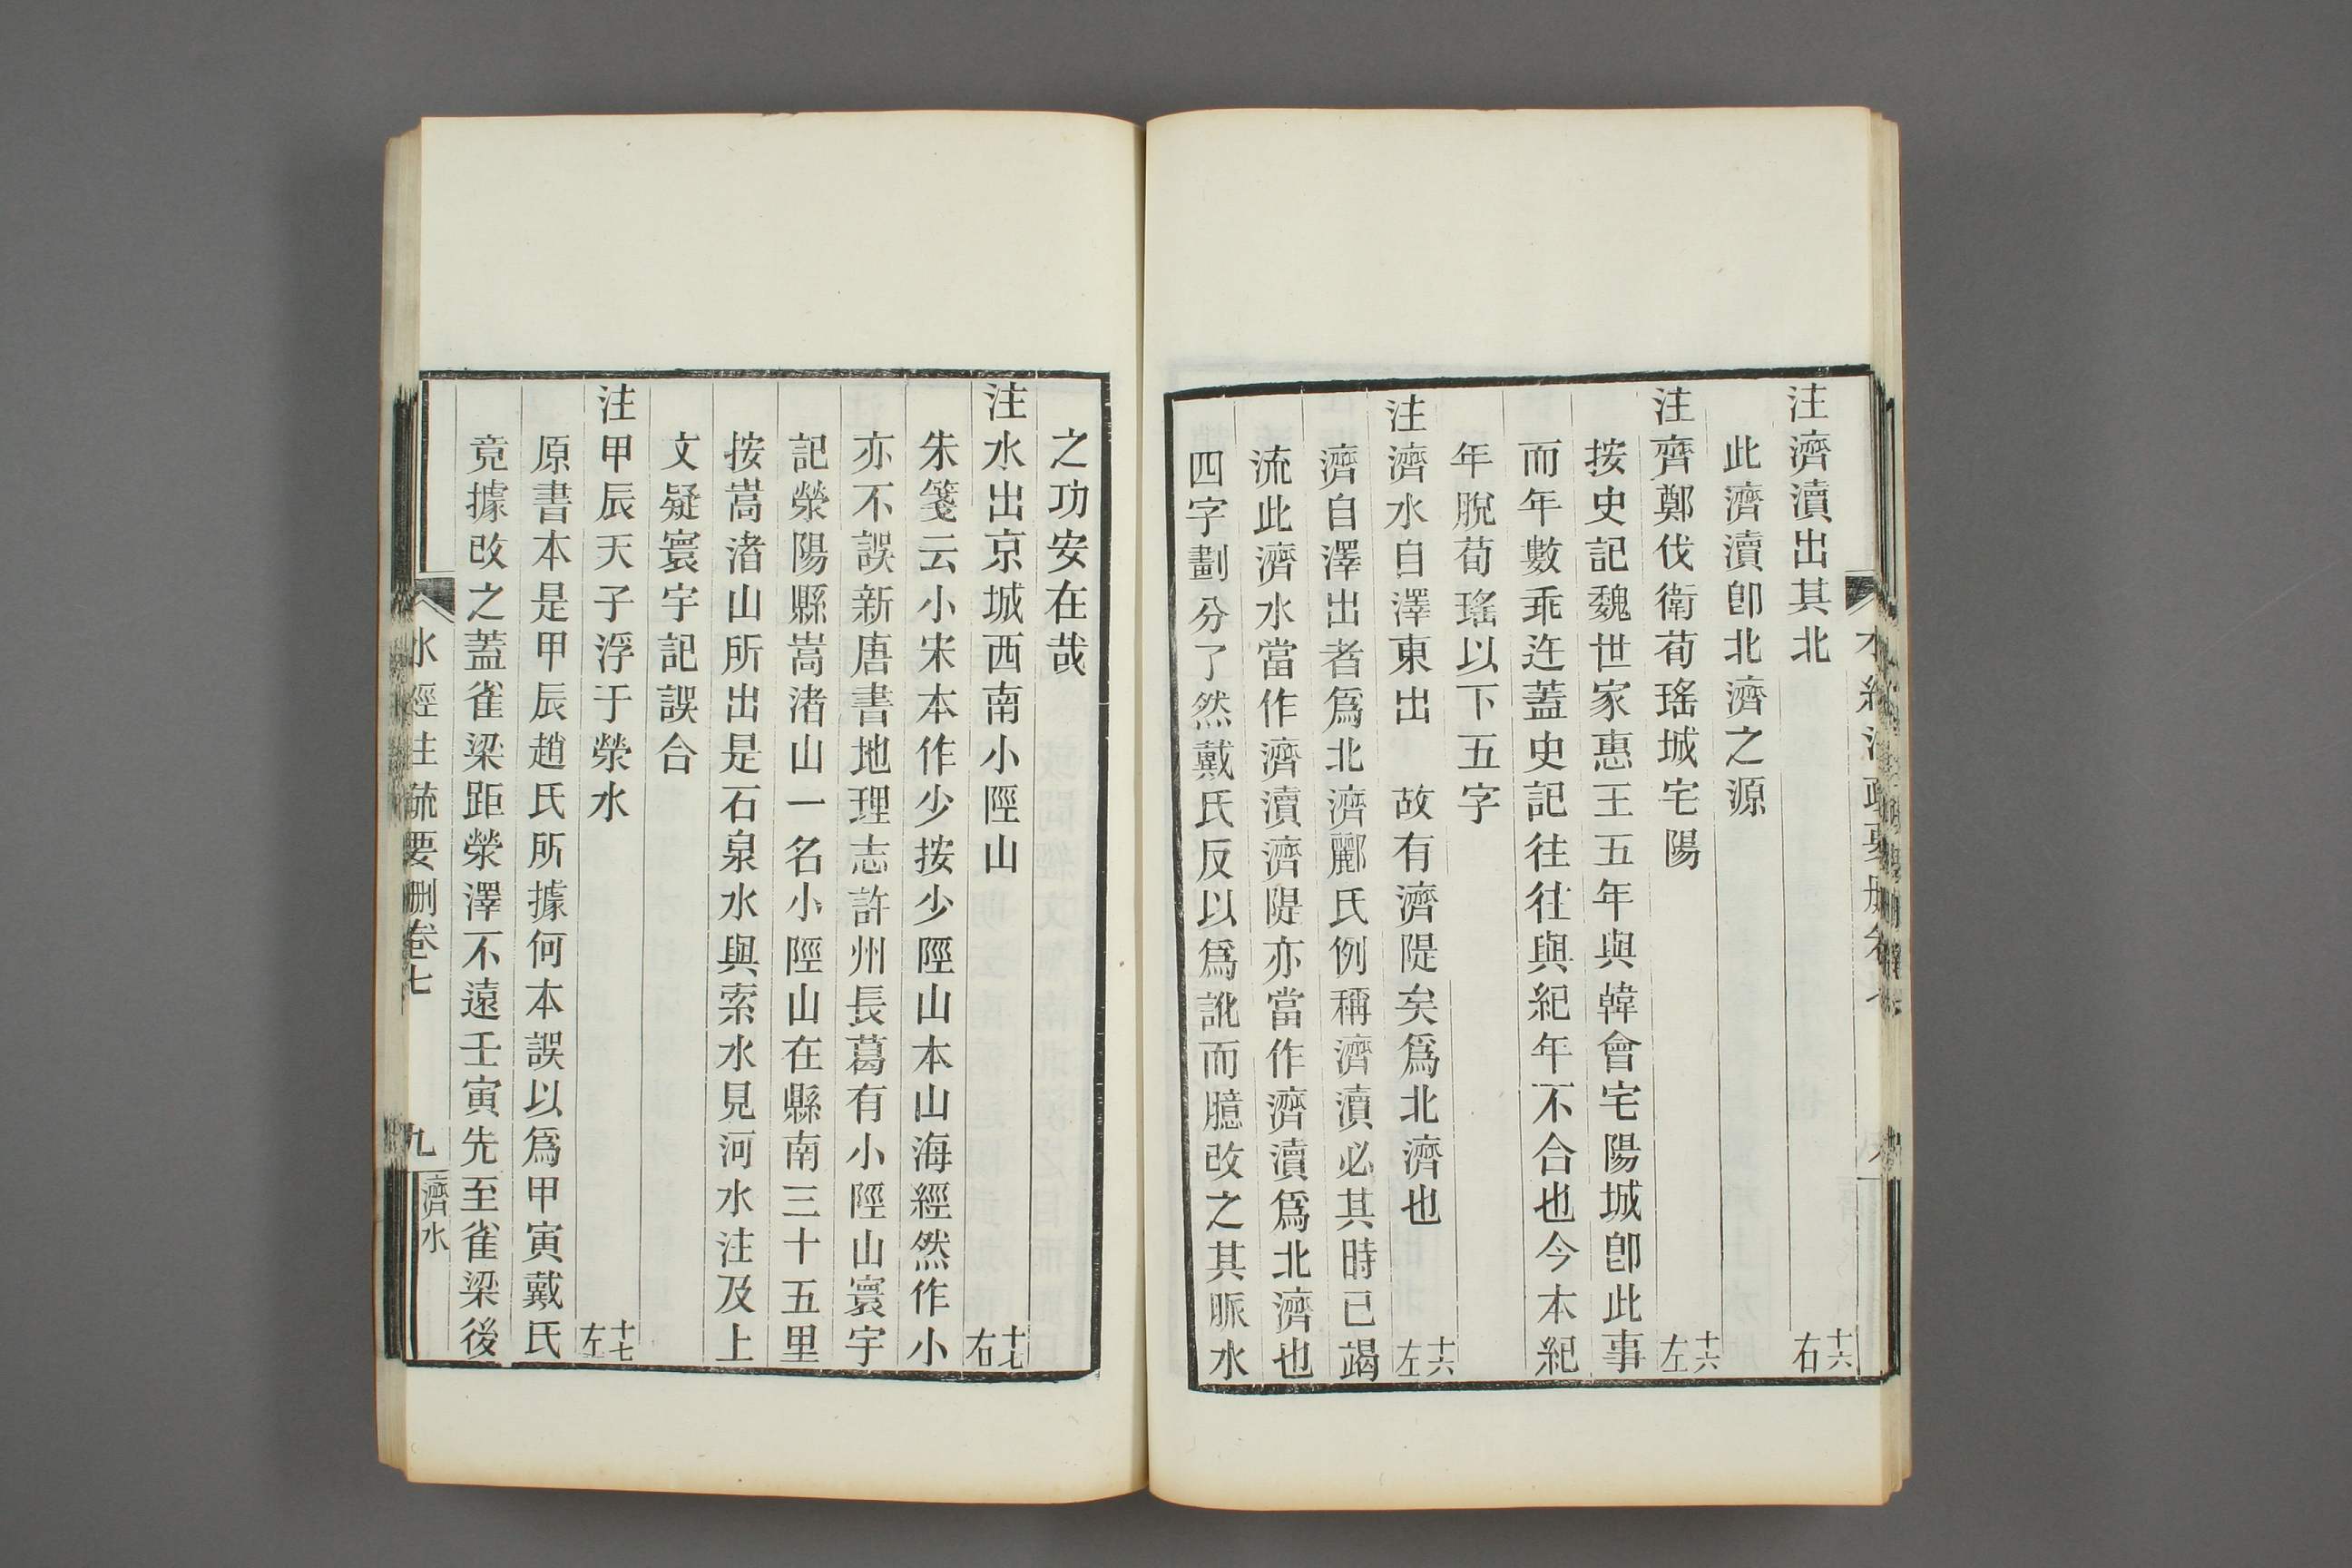 注濟瀆出其北 十六右
此濟瀆卽北濟之源
注齊鄭伐衛荀瑤城宅陽 十六左
按史記魏世家惠王五年與韓會宅陽城卽此事
而年數乖迕蓋史記往往與紀年不合也今本紀
年脫荀瑤以下五字
注濟水自澤東出 故有濟隄矣爲北濟也 十六左
濟自澤出者爲北濟酈氏例稱濟瀆必其時已竭
流此濟水當作濟瀆濟隄亦當作濟瀆爲北濟也
四字劃分了然戴氏反以爲訛而臆改之其脈水
之功安在哉
注水出京城西南小陘山 十七右
朱箋云小宋本作少按少陘山本山海經然作小
亦不誤新唐書地理志許州長葛有小陘山寰宇
記滎陽縣嵩渚山一名小陘山在縣南三十五里
按嵩渚山所出是石泉水與索水見河水注及上
文疑寰宇記誤合
注甲辰天子浮于滎水 十七左
原書本是甲辰趙氏所據何本誤以爲甲寅戴氏
竟據改之蓋雀梁距滎澤不遠壬寅先至雀梁後
水經注疏要刪卷七 九 濟水